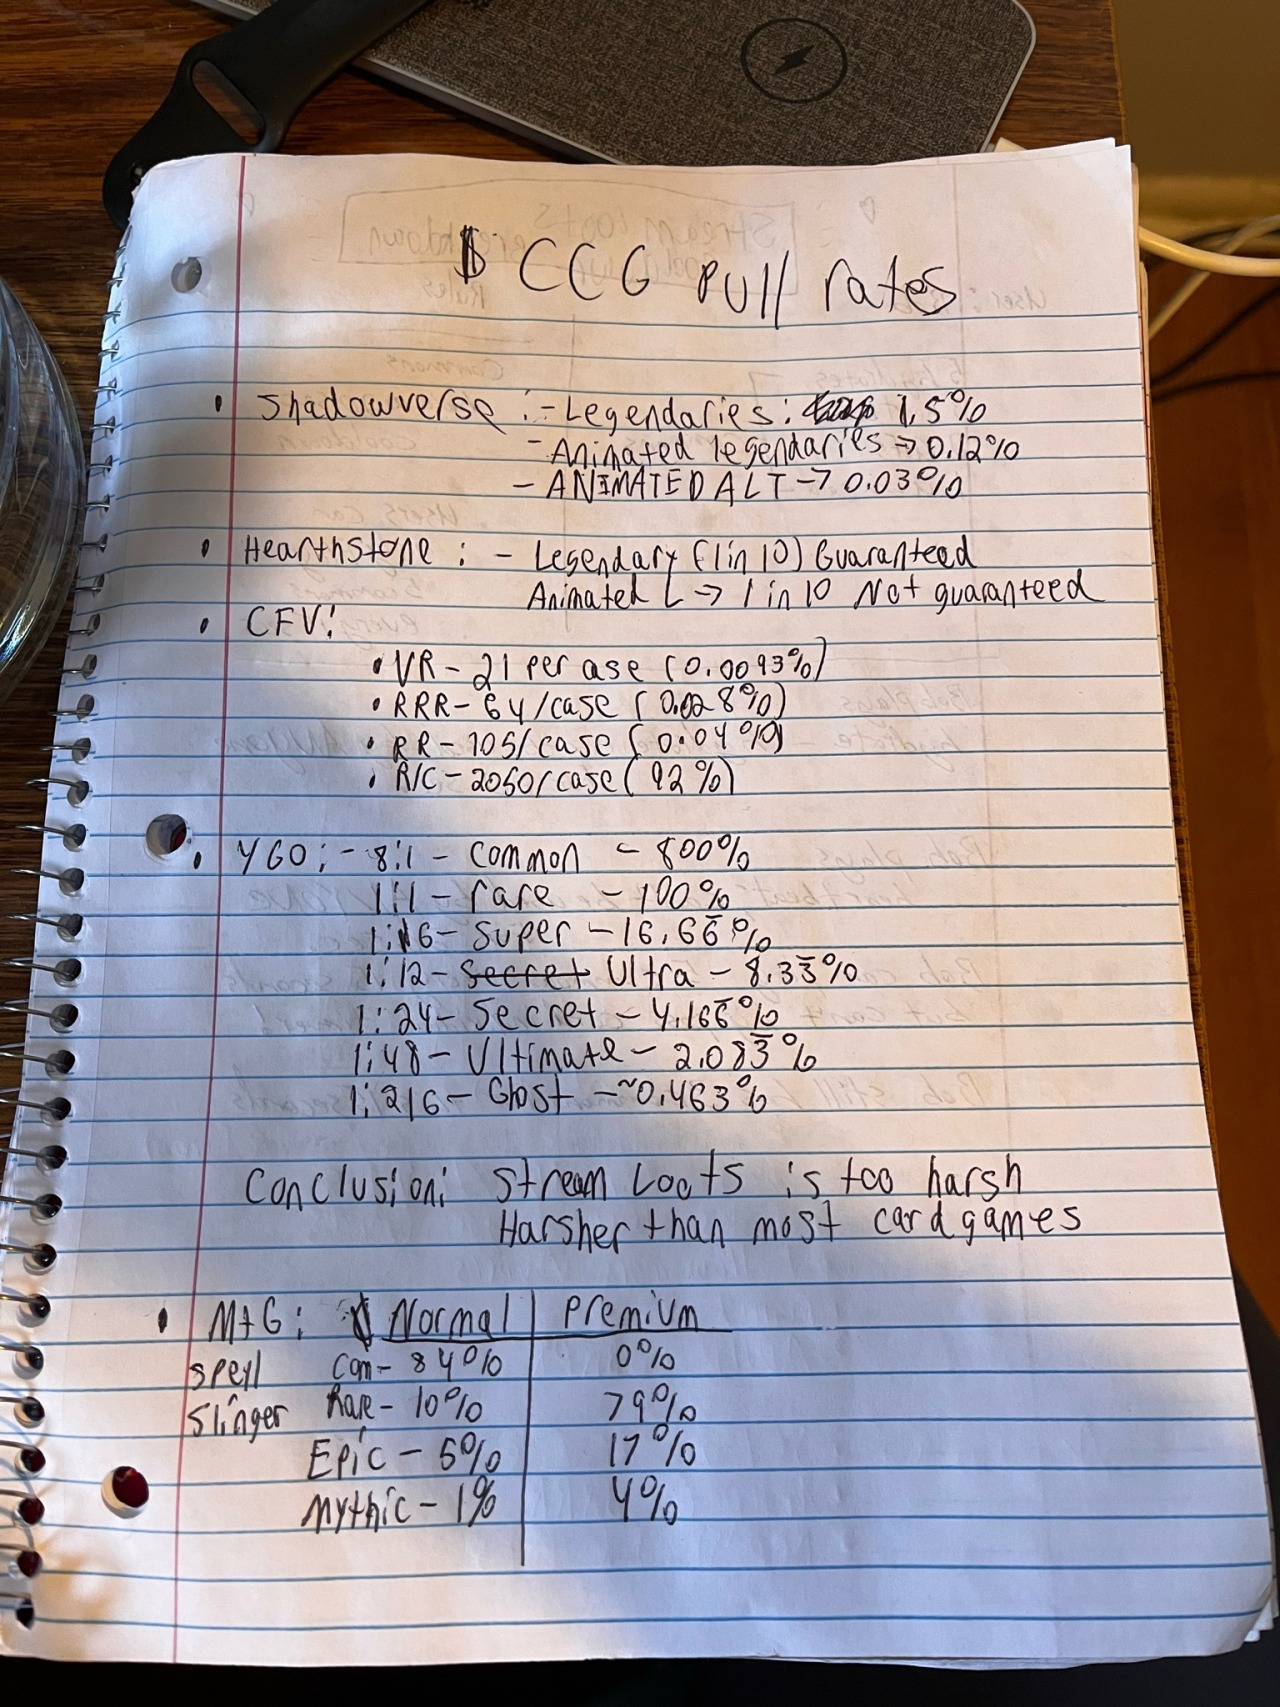 CCG Pull rates
• Shadowverse : - Legendaries: 1.5%
- Animated legendaries → 0.12%
- ANIMATED ALT → 0.03%
• Hearthstone : - Legendary (1 in 10) Guaranteed
Animated L → 1 in 10 Not guaranteed
• CFV:
• VR - 21 per ase (0.0093%)
• RRR - 64/case (0.028%)
• RR - 105/case (0.04%)
• R/C - 2050/case (92%)
• YGO: - 8:1 - common - 800%
1:1 - rare - 100%
1:6 - Super - 16.66̅%
1:12 - Secret Ultra - 8.33̅%
1:24 - Secret - 4.166̅%
1:48 - Ultimate - 2.083̅%
1:216 - Ghost - ~0.463%
Conclusion: Stream Loots is too harsh
Harsher than most card games
• MtG: Normal | Premium
Spell Com - 84% 0%
Slinger Rare - 10% 79%
Epic - 5% 17%
Mythic - 1% 4%